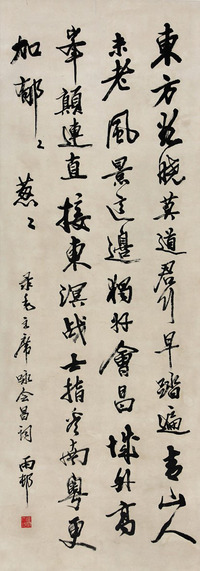 東方欲曉莫道君行早踏遍青山人
未老風景這邊獨好會昌城外高
峯顛連直接東溟战士指看南粤更
加郁〻葱〻
录毛主席咏会昌词 雨邨